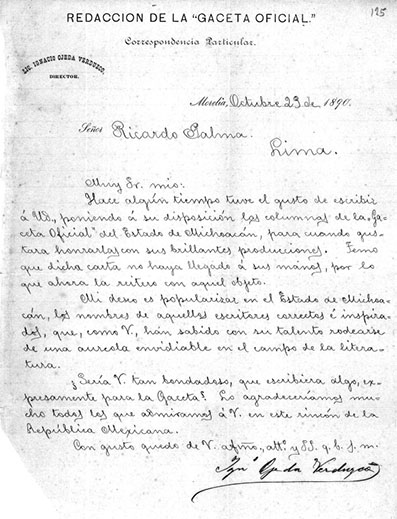 195
REDACCION DE LA "GACETA OFICIAL."
Correspondencia Particular.
LIC. IGNACIO OJEDA VERDUZCO,
DIRECTOR.
Morelia, Octubre 23 de 1890.
Señor Ricardo Palma.
Lima.
Muy Sr. mio:
Hace algún tiempo tuve el gusto de escribir
á Ud., poniendo á su disposición las columnas de la "Ga-
ceta Oficial" del Estado de Michoacán, para cuando gus-
tara honrarlas con sus brillantes producciones. Temo
que dicha carta no haya llegado á sus manos, por lo
que ahora la reitero con aquel objeto.
Mi deseo es popularizar en el Estado de Michoa-
cán, los nombres de aquellos escritores correctos é inspira-
dos, que, como V., han sabido con su talento rodearse
de una aureola envidiable en el campo de la litera-
tura.
¿Sería V. tan bondadoso, que escribiera algo, ex-
presamente para la Gaceta? Lo agradeceríamos mu-
cho todos los que admiramos á V. en este rincón de la
República Mexicana.
Con gusto quedo de V. afmo., atto. y SS. q. b. s. m.
Ign Ojeda Verduzco